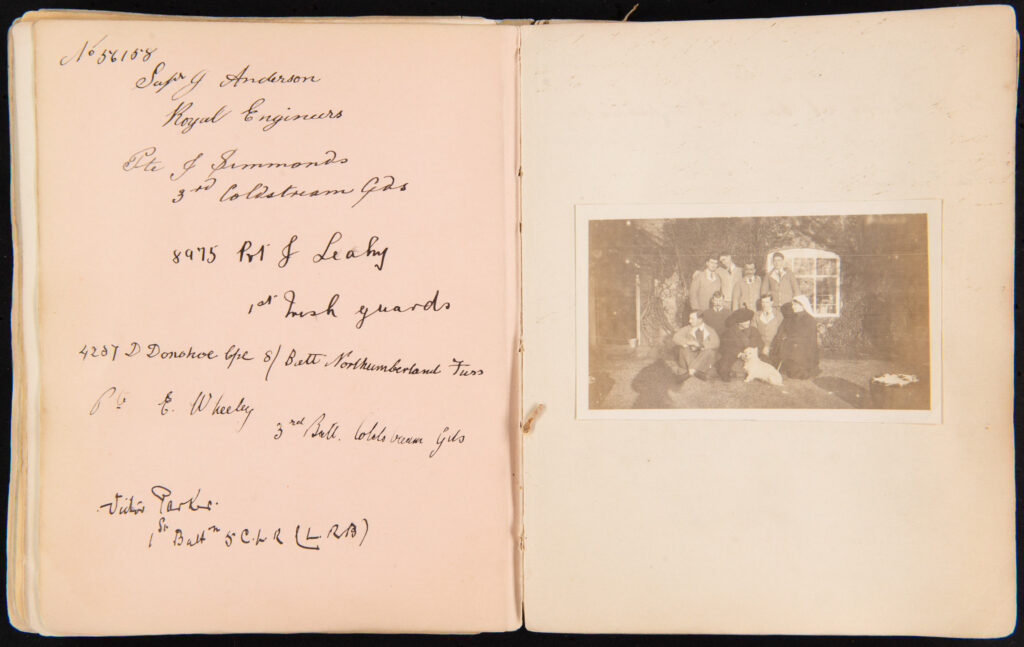 No 56158
Sapr J Anderson
Royal Engineers
Pte J Simmonds
3rd Coldstream Gds
8975 Pvt J Leahy
1st Irish guards
4287 D Donohoe Cpl 8/ Batt Northumberland Fuss
Pte E. Wheeley
3rd Batt. Coldstream Gds
Victor Parker.
1st Battn 5 C.L.R (L.R.B)